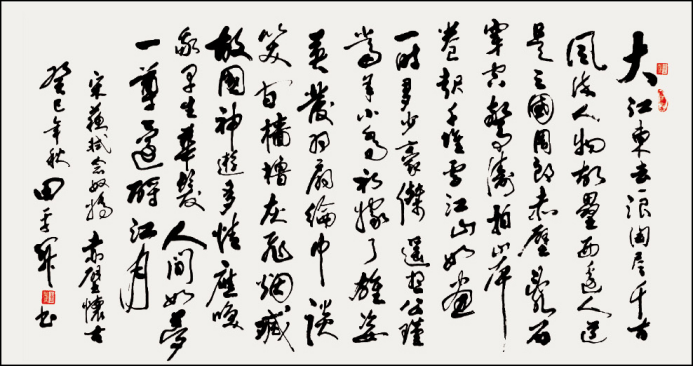 大江東去浪淘尽千古
風流人物故壘西邊人道
是三國周郎赤壁亂石
穿空驚濤拍岸
卷起千堆雪江山如畫
一時多少豪傑遥想公瑾
當年小喬初嫁了雄姿
英發羽扇綸巾談
笑間檣櫓灰飛烟滅
故國神遊多情應笑
我早生華髮人間如夢
一尊還酹江月
宋蘇軾念奴嬌赤壁懷古
癸巳年秋田書